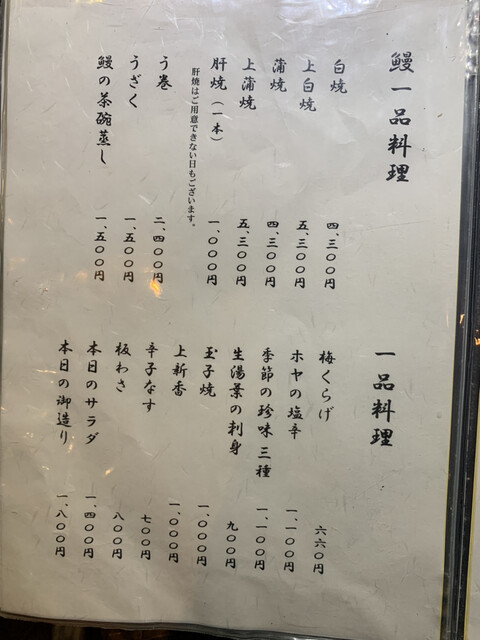 鰻一品料理
白焼 四、三〇〇円
上白焼 五、三〇〇円
蒲焼 四、三〇〇円
上蒲焼 五、三〇〇円
肝焼(一本) 一、〇〇〇円
肝焼はご用意できない日もございます。
う巻 二、四〇〇円
うざく 一、五〇〇円
鰻の茶碗蒸し 一、五〇〇円
一品料理
梅くらげ 六六〇円
ホヤの塩辛 一、一〇〇円
季節の珍味三種 一、一〇〇円
生湯葉の刺身 九〇〇円
玉子焼 一、〇〇〇円
上新香 一、〇〇〇円
辛子なす 七〇〇円
板わさ 八〇〇円
本日のサラダ 一、四〇〇円
本日の御造り 一、八〇〇円